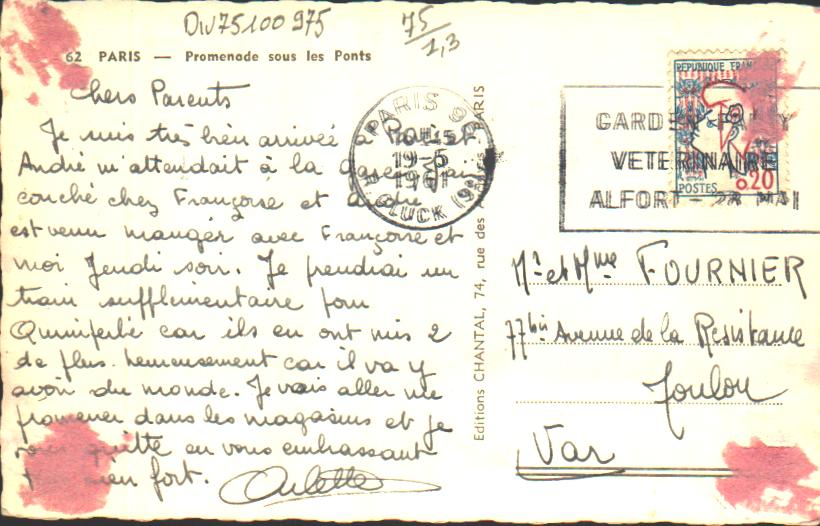 DW75100975
75/1,3
62 PARIS — Promenade sous les Ponts
Chers Parents
Je suis très bien arrivée à
André m'attendait à la gare. J'ai
couché chez Françoise et André
est venu manger avec Françoise et
moi Jeudi soir. Je prendrai un
train supplémentaire pour
Quimperlé car ils en ont mis 2
de plus. heureusement car il va y
avoir du monde. Je vais aller me
promener dans les magasins et je
vous quitte en vous embrassant
bien fort.
Editions CHANTAL, 74, rue des PARIS
PARIS
19-5
1961
R. GLUCK (9e)
GARDEN-PARTY
VETERINAIRE
ALFORT - 28 MAI
REPUBLIQUE FRANC
POSTES 0,20
Mr et Mme FOURNIER
77 bis Avenue de la Resistance
Toulon
Var